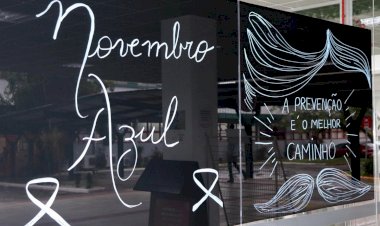 Novembro
Azul
A PREVENÇÃO
É O MELHOR
CAMINHO